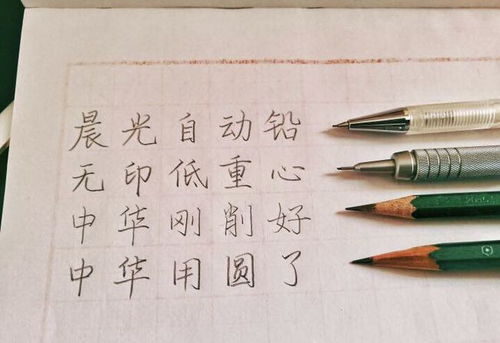 晨光自动铅
无印低重心
中华刚削好
中华用圆了